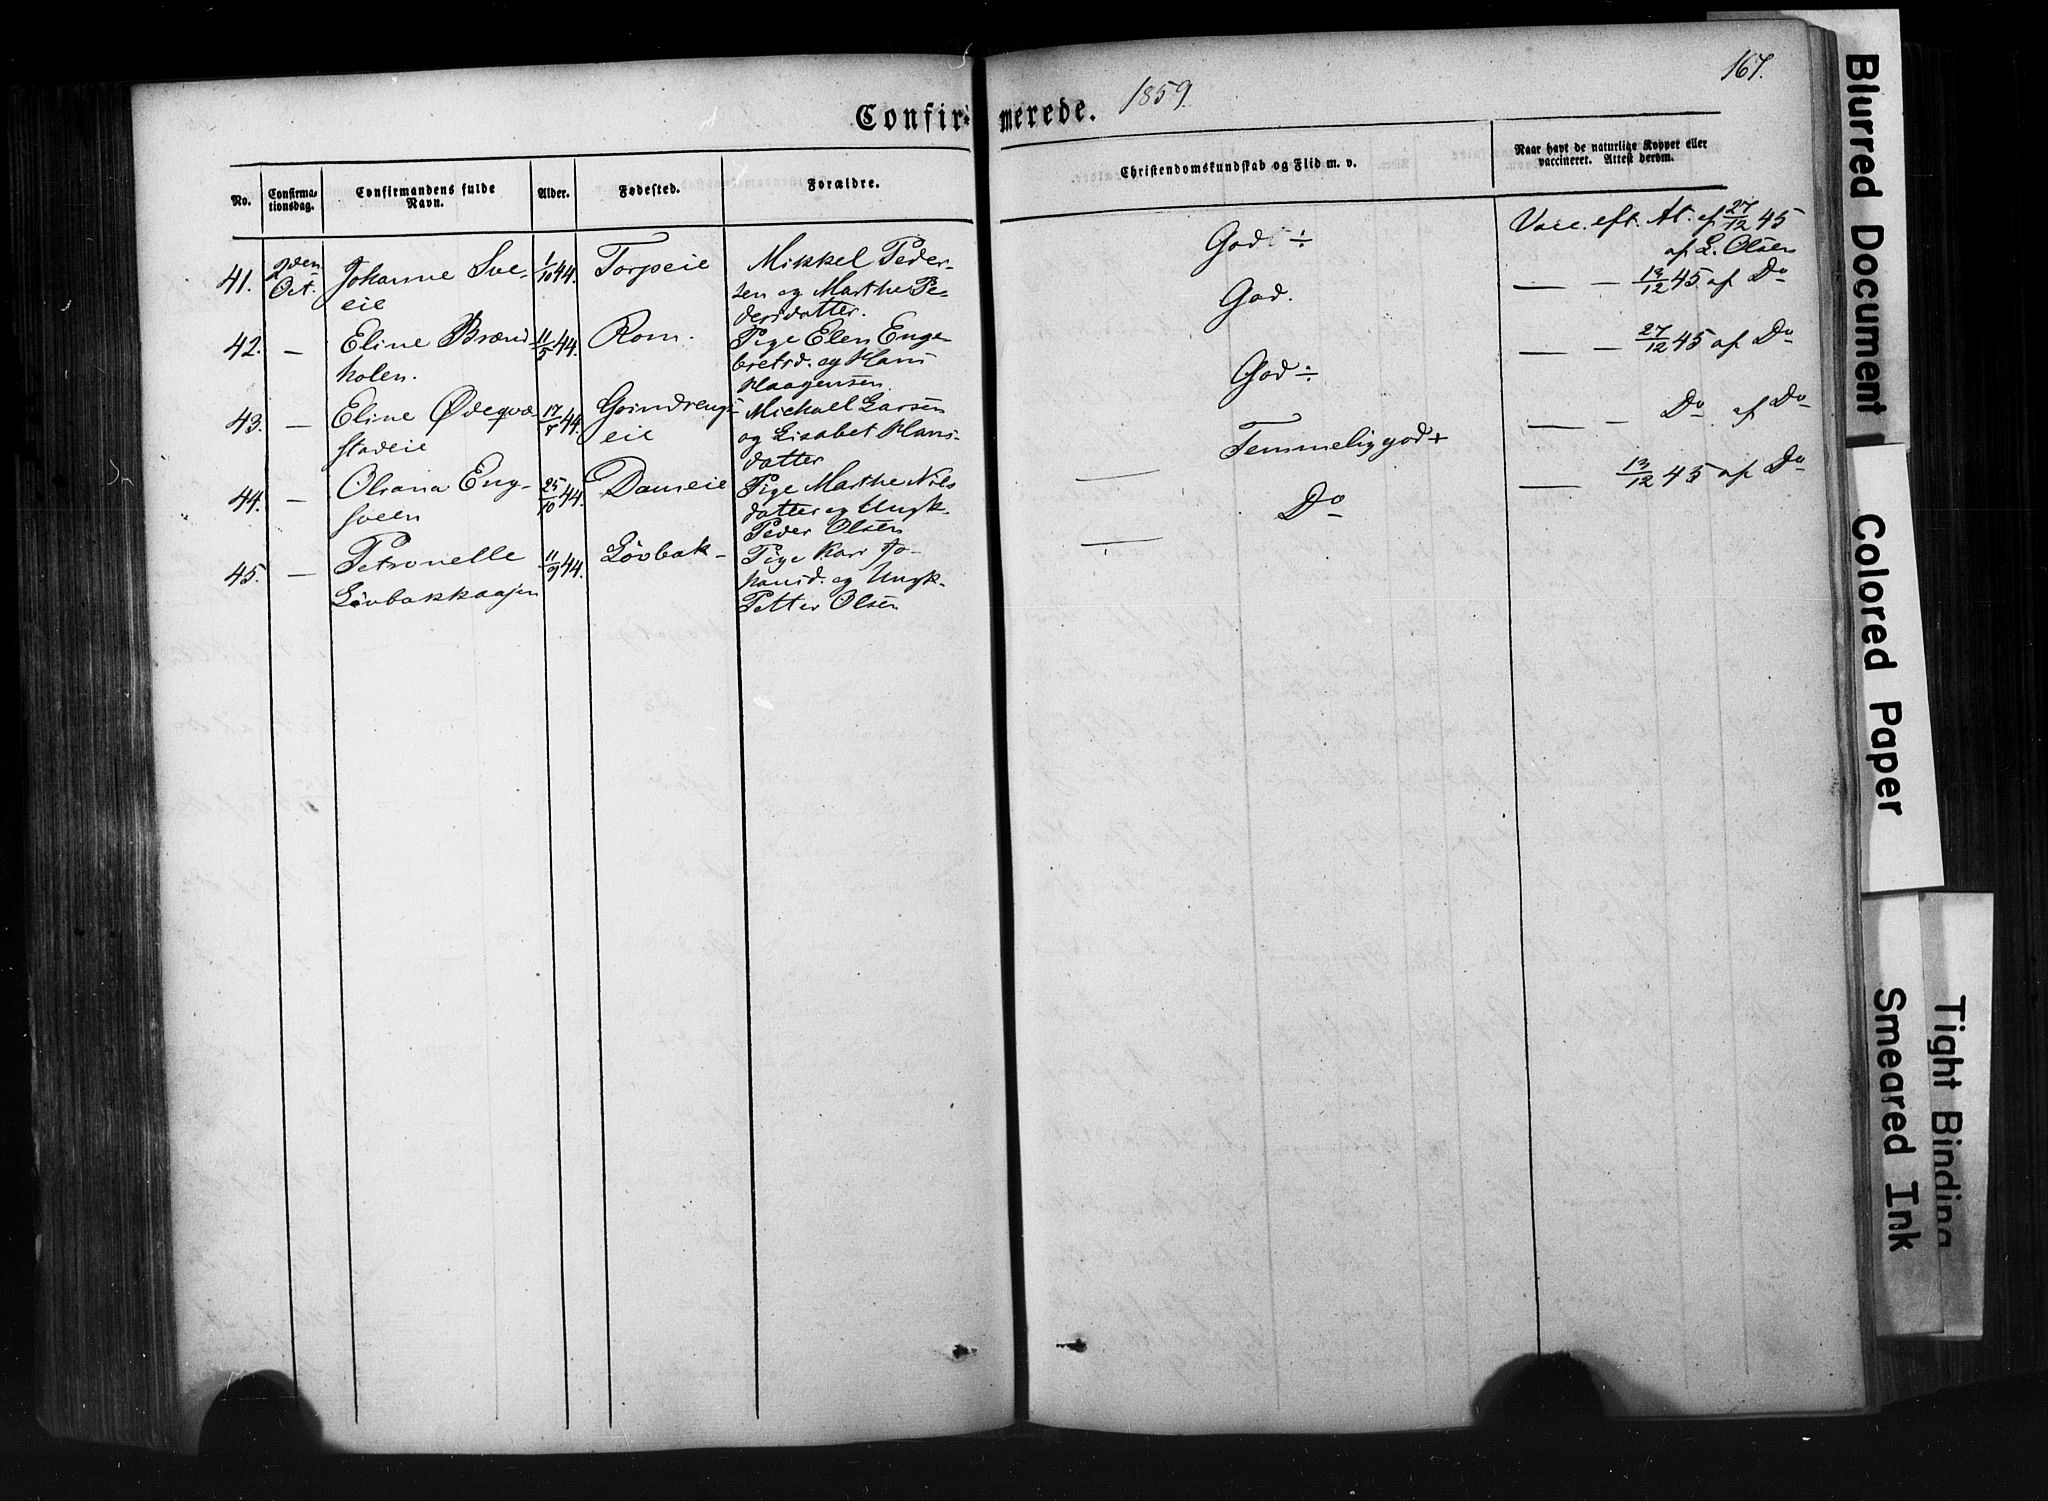 167.
Confirmerede. 1859
No.
Confirmationsdag.
Confirmandens fulde Navn.
Alder.
Fødested.
Forældre.
Christendomskundskab og Flid m. v.
Naar havt de naturlige Kopper eller
vaccineret. Attest derom.
41. den Oct. Johanne Sveeie 1/10 44. Torpeie Mikkel Pedersen og Marthe Pedersdatter. God ÷ Vacc. eft. At. af 27/12 45 af L. Olsen
42. — Eline Brændholen. 11/5 44. Rom. Pige Elen Engebretsd. og Hans Haagensen. God. — — 13/12 45 af Do
43. — Eline Ødeqvæstadeie 17/7 44. Grindrengseie Michael Larsen og Lisabet Hansdatter God ÷ — — 27/12 45 af Do
44. — Oleana Engsveen 25/10 44. Dameie Pige Marthe Nilsdatter og Ungk. Peder Olsen — Temmelig god + — — Do af Do
45. — Petronelle Løvbakkaajen 11/9 44. Løvbak — Pige Kari Johansd. og Ungk. Petter Olsen — Do — 13/12 45 af Do
Blurred Document
Colored Paper
Tight Binding
Smeared Ink